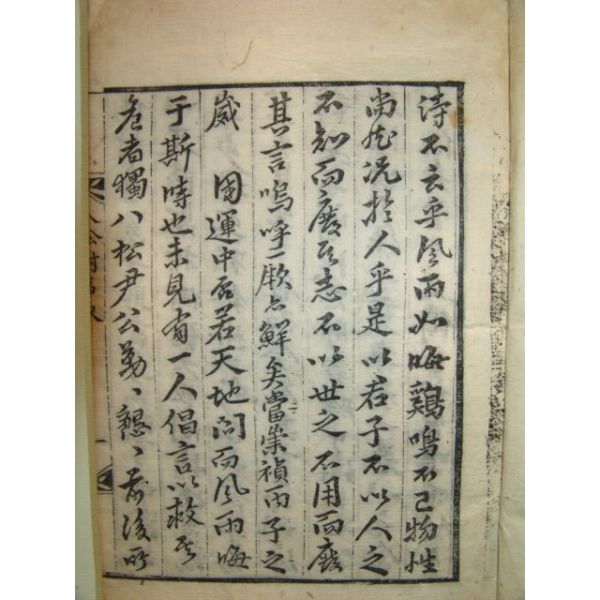 詩不云乎風雨如晦鷄鳴不已物性
尚然況於人乎是以君子不以人之
不知而廢其志不以世之不用而廢
其言嗚呼厥亦鮮矣當崇禎丙子之
歲 國運中否若天地閉而風雨晦
于斯時也未見有一人倡言以救其
危者獨八松尹公勤、懇、前後所